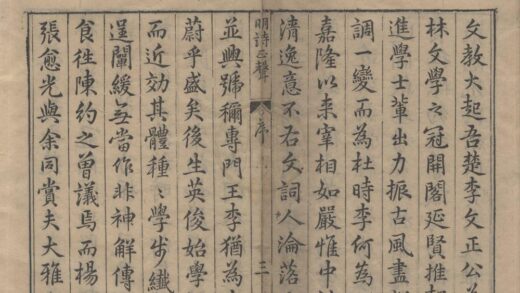 文教大起吾楚李文正公為
林文學之冠開閣延賢推
進學士輩出力振古風盡
調一變而為杜時李何為
嘉隆以來宰相如嚴惟中
清逸意不右文詞人淪落
明詩正聲 序 三
並興號稱專門王李猶為
蔚乎盛矣後生英俊始學
而近效其體種〻學步纖
逞闡緩無當作非神解傳
食徃陳約之曾議焉而楊
張愈光與余同賞夫大雅